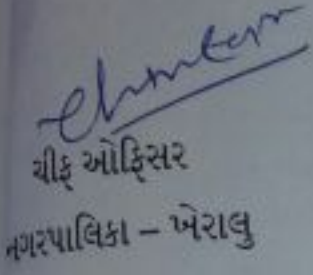 ચીફ ઓફિસર
નગરપાલિકા – ખેરાલુ